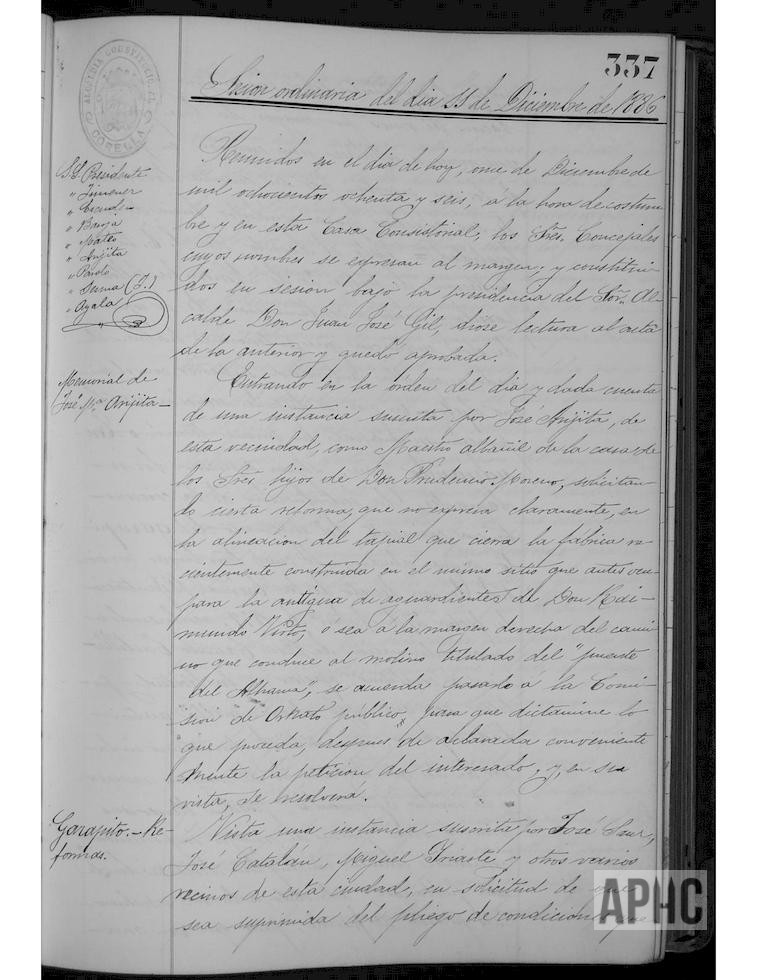 337
Sesión ordinaria del dia 11 de Diciembre de 1886
ALCALDIA CONSTITUCIONAL
CORELLA
S.S. Presidente
" Jimenez
"
"
" Mateo
" Arijita
"
" (J.)
" Ayala
Reunidos en el dia de hoy, once de Diciembre de
mil ochocientos ochenta y seis, á la hora de costum-
bre y en esta Casa Consistorial, los Sres. Concejales
cuyos nombres se expresan al margen; y constitui-
dos en sesión bajo la presidencia del Sor. Al-
calde Don Juan José Gil, dióse lectura al acta
de la anterior y quedó aprobada.
Memorial de
José Ma. Arijita
Entrando en la órden del dia y dada cuenta
de una instancia suscrita por José Arijita, de
esta vecindad, como Maestro albañil de la casa de
los Sres hijos de Don Prudencio Moreno, solicitan-
do cierta reforma, que no expresa claramente, en
la alineacion del tapial que cierra la fábrica re-
cientemente construida en el mismo sitio que antes ocu-
para la antigua de aguardientes de Don Rai-
mundo Virto, ó sea á la margen derecha del cami-
no que conduce al molino titulado del "puente
del Alhama", se acuerda pasarlo á la Comi-
sion de Ornato público, para que dictamine lo
que proceda, despues de aclarada conveniente
mente la peticion del interesado, y, en su
vista, se resolverá.
Garapito.- Re-
formas.
Vista una instancia suscrita por José
José Catalán, Miguel Iriarte y otros varios
vecinos de esta ciudad, en solicitud de que
sea suprimida del pliego de condiciones
APHC